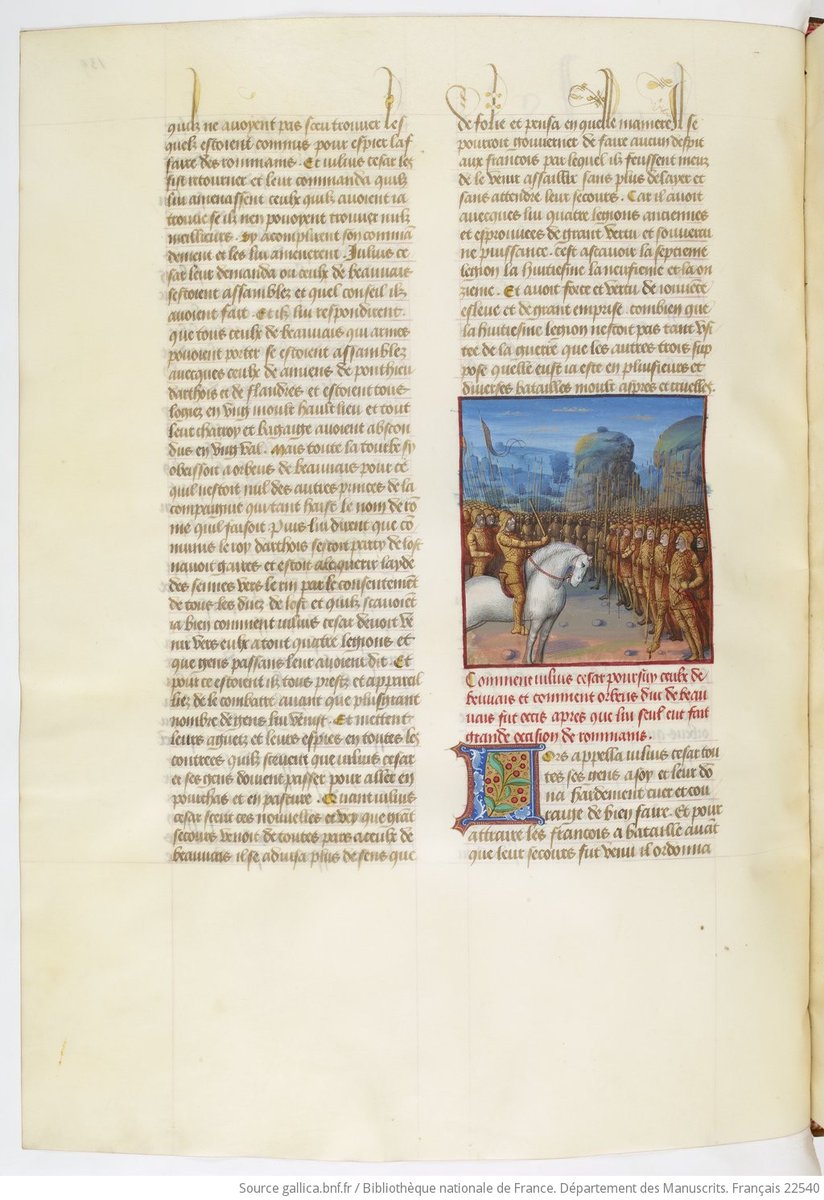 quilz ne avoyent pas sceu trouver les
quelz estoient commis pour espier laf
faire des rommains. Et iulius cesar les
fist retourner et leur commanda quilz
lui amenassent ceulx quilz avoient ia
trouve se ilz nen povoyent trouver nulz
meilleurs. Sy acomplirent son comma
dement et les lui amenerent. Julius ce
sar leur demanda ou ceulx de beauvais
sestoient assamblez et quel conseil ilz
avoient fait. Et ilz lui respondirent
que tous ceulx de beauvais qui armes
povoient porter se estoient assamblez
avecques ceulx de amiens de ponthieu
darthois et de flandres et estoient tous
logiez en ung moult hault lieu et tout
leur charroy et bagaige avoient abscon
dus en ung val. Mais toute la tourbe sy
obeissoit a orbeus de beauvais pour ce
quil nestoit nul des autres princes de la
compaignie qui tant haist le nom de ro
me quil faisoit. Puis lui dirent que co
munis le roy darthois sestoit party de lost
navoit gaires et estoit ale querir layde
des sennes vers le rin par le consentement
de tous les ducz de lost et quilz scavoient
ia bien comment iulius cesar devoit ve
nir vers eulx a tout quatre legions et
que gens passans leur avoient dit. Et
pour ce estoient ilz tous prestz et appareil
liez de le combatre avant que plus grant
nombre de gens lui venist. Et mettent
leurs aguetz et leurs espies en toutes les
contrees quilz scevent que iulius cesar
et ses gens doivent passer pour aller en
pourchas et en pasture. Quant iulius
cesar sceut ces nouvelles et vey que grant
secours venoit de toutes pars a ceulx de
beauvais il se advisa plus de sens que
de folie et pensa en quelle maniere il se
pourroit gouverner de faire aucun despit
aux francois par lequel ilz feussent meuz
de le venir assaillir sans plus delayer et
sans attendre leur secours. Car il avoit
avecques lui quatre legions anciennes
et esprouvees de grant vertu et souverai
ne puissance. cest ascavoir la septieme
legion la huitiesme la neufieme et la on
zieme. Et avoit force et vertu de iouvente
esleue et de grant emprise. combien que
la huitiesme legion nestoit pas tant usi
tee de la guerre que les autres trois sup
pose quelle eust ia este en plusieurs et
diverses batailles moult aspres et cruelles.
Comment iulius cesar poursuy ceulx de
beuvais et comment orbeus duc de beau
vais fut occis apres que lui seul eut fait
grande occision de rommains.
Lors appella iulius cesar tou
tes ses gens a soy et leur do
na hardement cuer et cou
raige de bien faire. Et pour
attraire les francois a bataille avat
que leur secours fut venu il ordonna
Source gallica.bnf.fr / Bibliothèque nationale de France. Département des Manuscrits. Français 22540